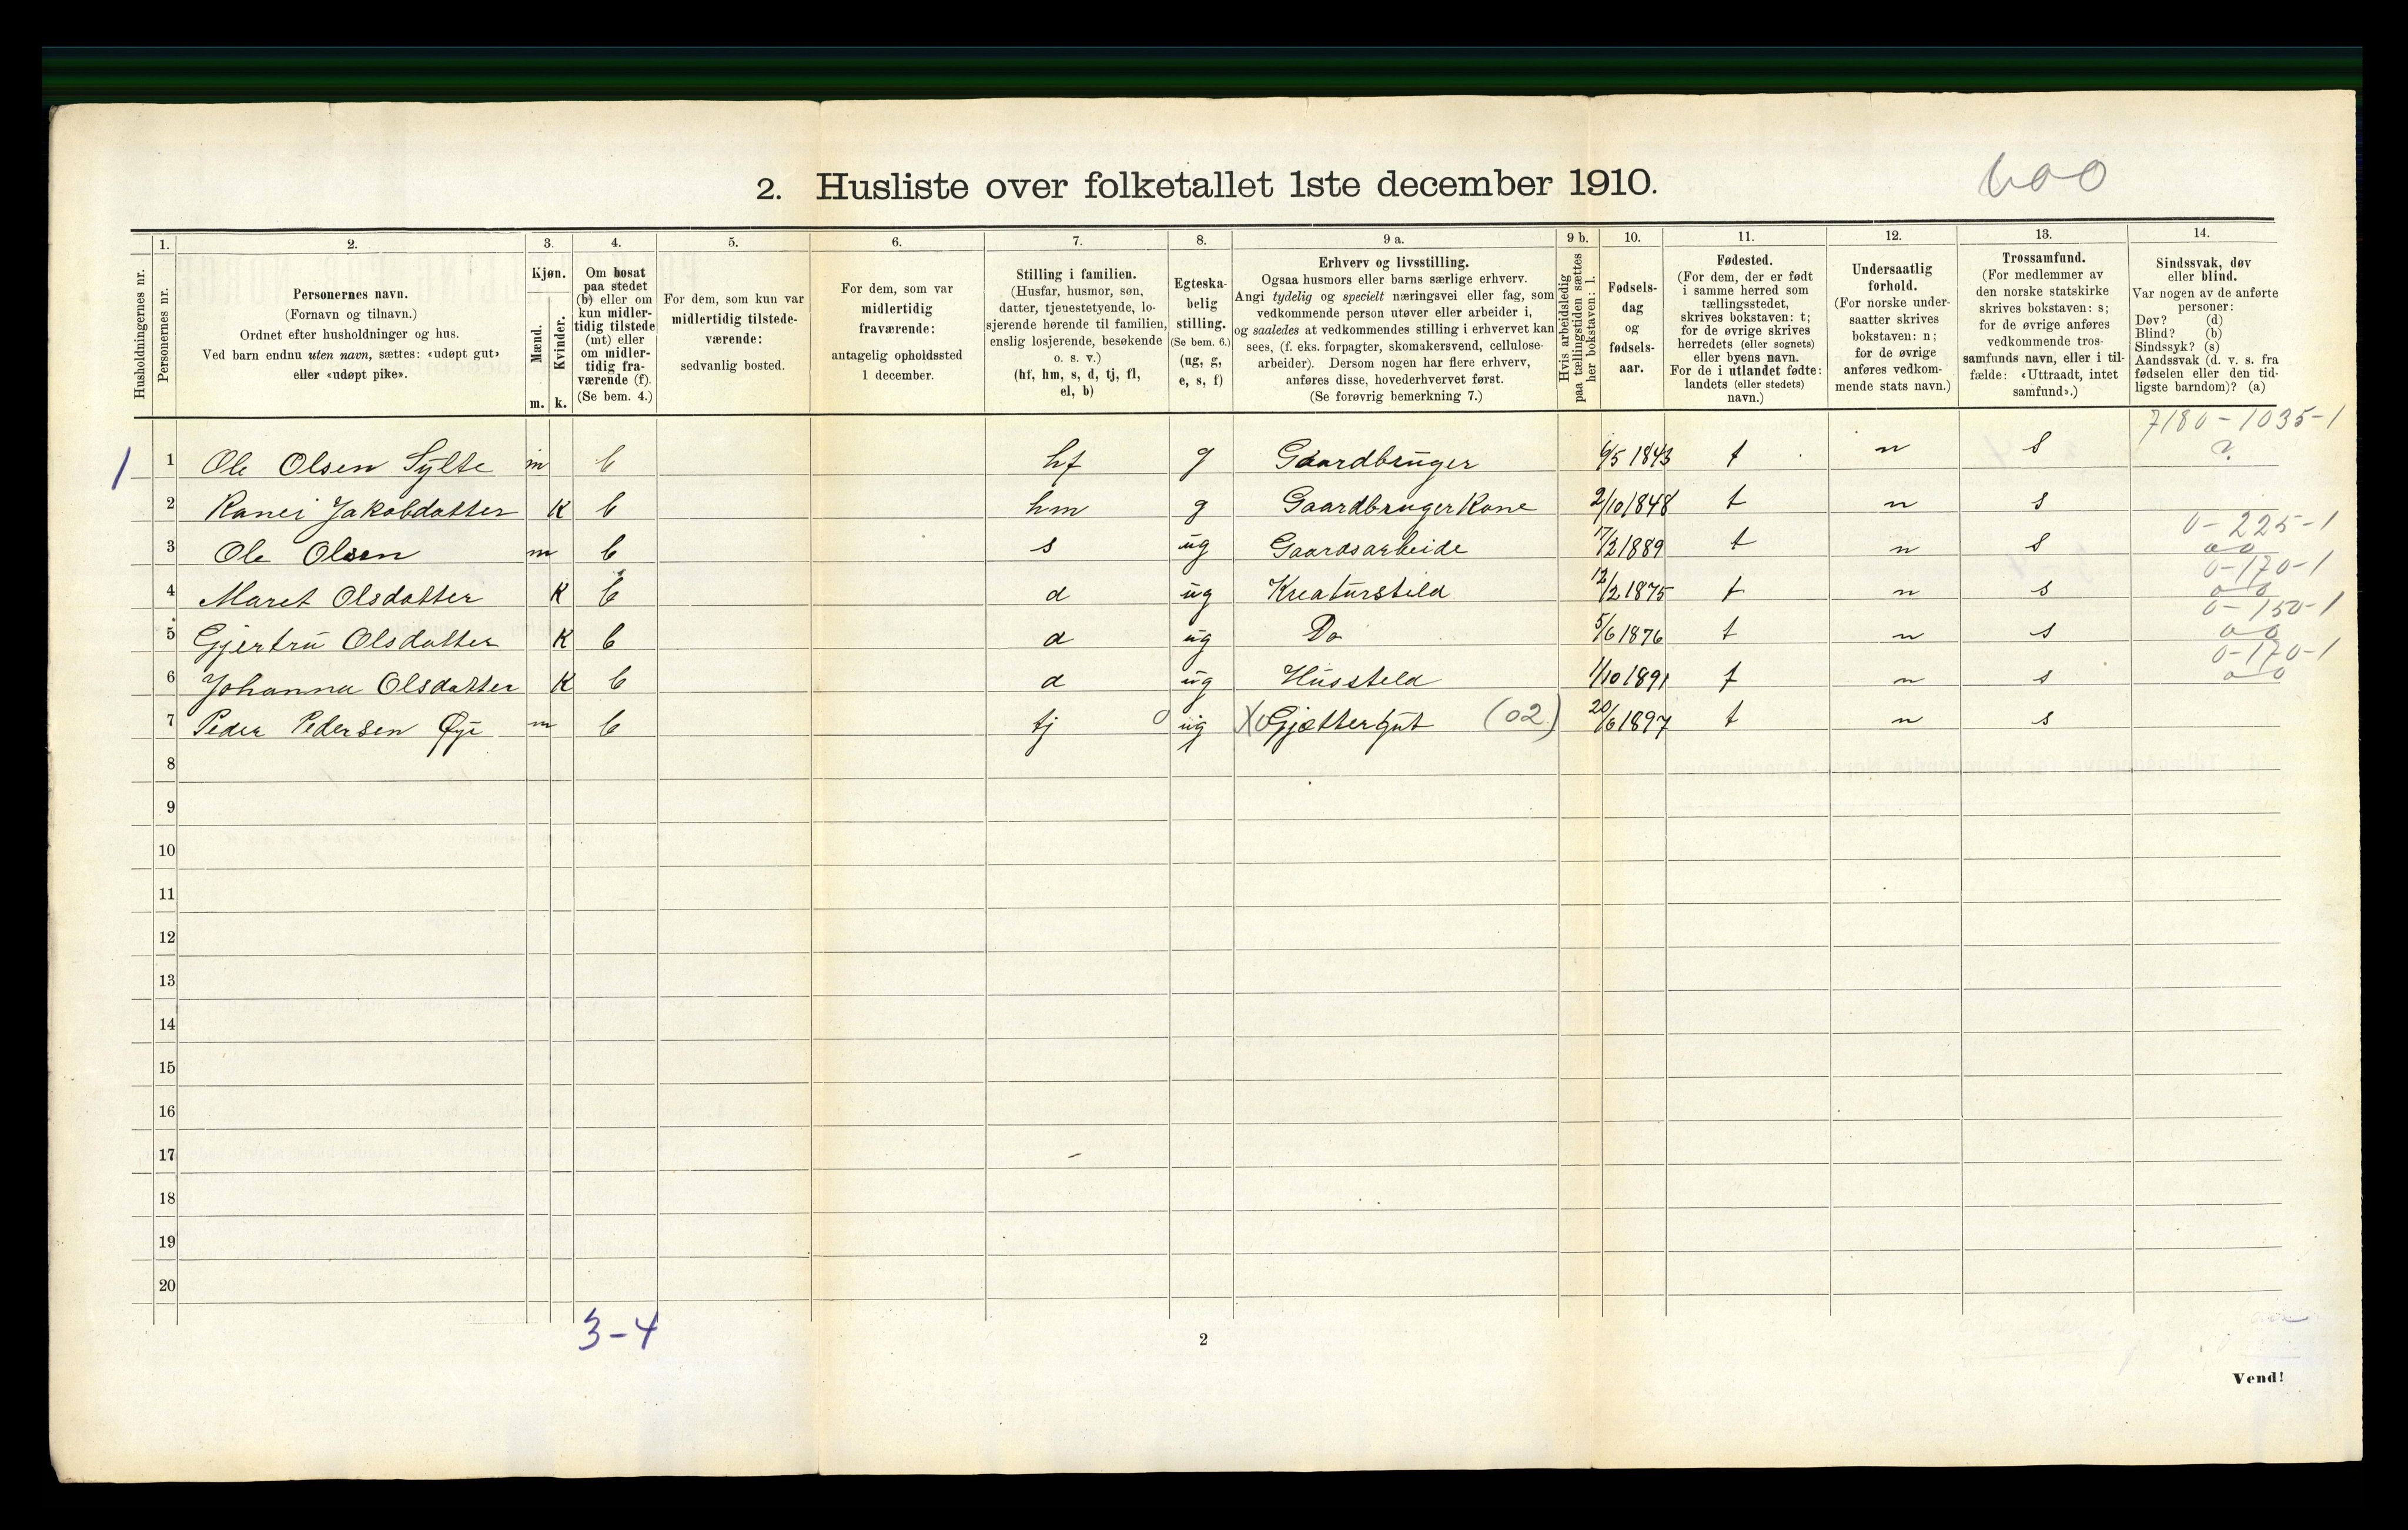 2. Husliste over folketallet 1ste december 1910.
600
1. 2. 3. 4. 5. 6. 7. 8. 9 a. 9 b. 10. 11. 12. 13. 14.
Husholdningernes nr.
Personernes nr.
Personernes navn.
(Fornavn og tilnavn.)
Ordnet efter husholdninger og hus.
Ved barn endnu uten navn, sættes: «udøpt gut»
eller «udøpt pike».
Kjøn.
Mænd.
Kvinder.
m. k.
Om bosat
paa stedet
(b) eller om
kun midler-
tidig tilstede
(mt) eller
om midler-
tidig fra-
værende (f).
(Se bem. 4.)
For dem, som kun var
midlertidig tilstede-
værende:
sedvanlig bosted.
For dem, som var
midlertidig
fraværende:
antagelig opholdssted
1 december.
Stilling i familien.
(Husfar, husmor, søn,
datter, tjenestetyende, lo-
sjerende hørende til familien,
enslig losjerende, besøkende
o. s. v.)
(hf, hm, s, d, tj, fl,
el, b)
Egteska-
belig
stilling.
(Se bem. 6.)
(ug, g,
e, s, f)
Erhverv og livsstilling.
Ogsaa husmors eller barns særlige erhverv.
Angi tydelig og specielt næringsvei eller fag, som
vedkommende person utøver eller arbeider i,
og saaledes at vedkommendes stilling i erhvervet kan
sees, (f. eks. forpagter, skomakersvend, cellulose-
arbeider). Dersom nogen har flere erhverv,
anføres disse, hovederhvervet først.
(Se forøvrig bemerkning 7.)
Hvis arbeidsledig
paa tællingstiden sættes
her bokstaven: l.
Fødsels-
dag
og
fødsels-
aar.
Fødested.
(For dem, der er født
i samme herred som
tællingsstedet,
skrives bokstaven: t;
for de øvrige skrives
herredets (eller sognets)
eller byens navn.
For de i utlandet fødte:
landets (eller stedets)
navn.)
Undersaatlig
forhold.
(For norske under-
saatter skrives
bokstaven: n;
for de øvrige
anføres vedkom-
mende stats navn.)
Trossamfund.
(For medlemmer av
den norske statskirke
skrives bokstaven: s;
for de øvrige anføres
vedkommende tros-
samfunds navn, eller i til-
fælde: «Uttraadt, intet
samfund».)
Sindssvak, døv
eller blind.
Var nogen av de anførte
personer:
Døv? (d)
Blind? (b)
Sindssyk? (s)
Aandssvak (d. v. s. fra
fødselen eller den tid-
ligste barndom)? (a)
7180-1035-1
1 1 Ole Olsen Sylte m b hf g Gaardbruger 6/5 1843 t n s
2 Ranei Jakobdatter K b hm g Gaardbruger Kone 2/10 1848 t n s
0-225-1
3 Ole Olsen m b s ug Gaardsarbeide 17/2 1889 t n s 0 0
0-170-1
4 Maret Olsdatter K b d ug Kreatursteld 12/2 1875 t n s 0 0
0-150-1
5 Gjertru Olsdatter K b d ug Do 5/6 1876 t n s 0 0
0-170-1
6 Johanna Olsdatter K b d ug Hussteld 1/10 1891 t n s 0 0
7 Peder Pedersen Øye m b tj 0 ug Gjættergut (02) 20/6 1897 t n s
8
9
10
11
12
13
14
15
16
17
18
19
20
3-4
2
Vend!